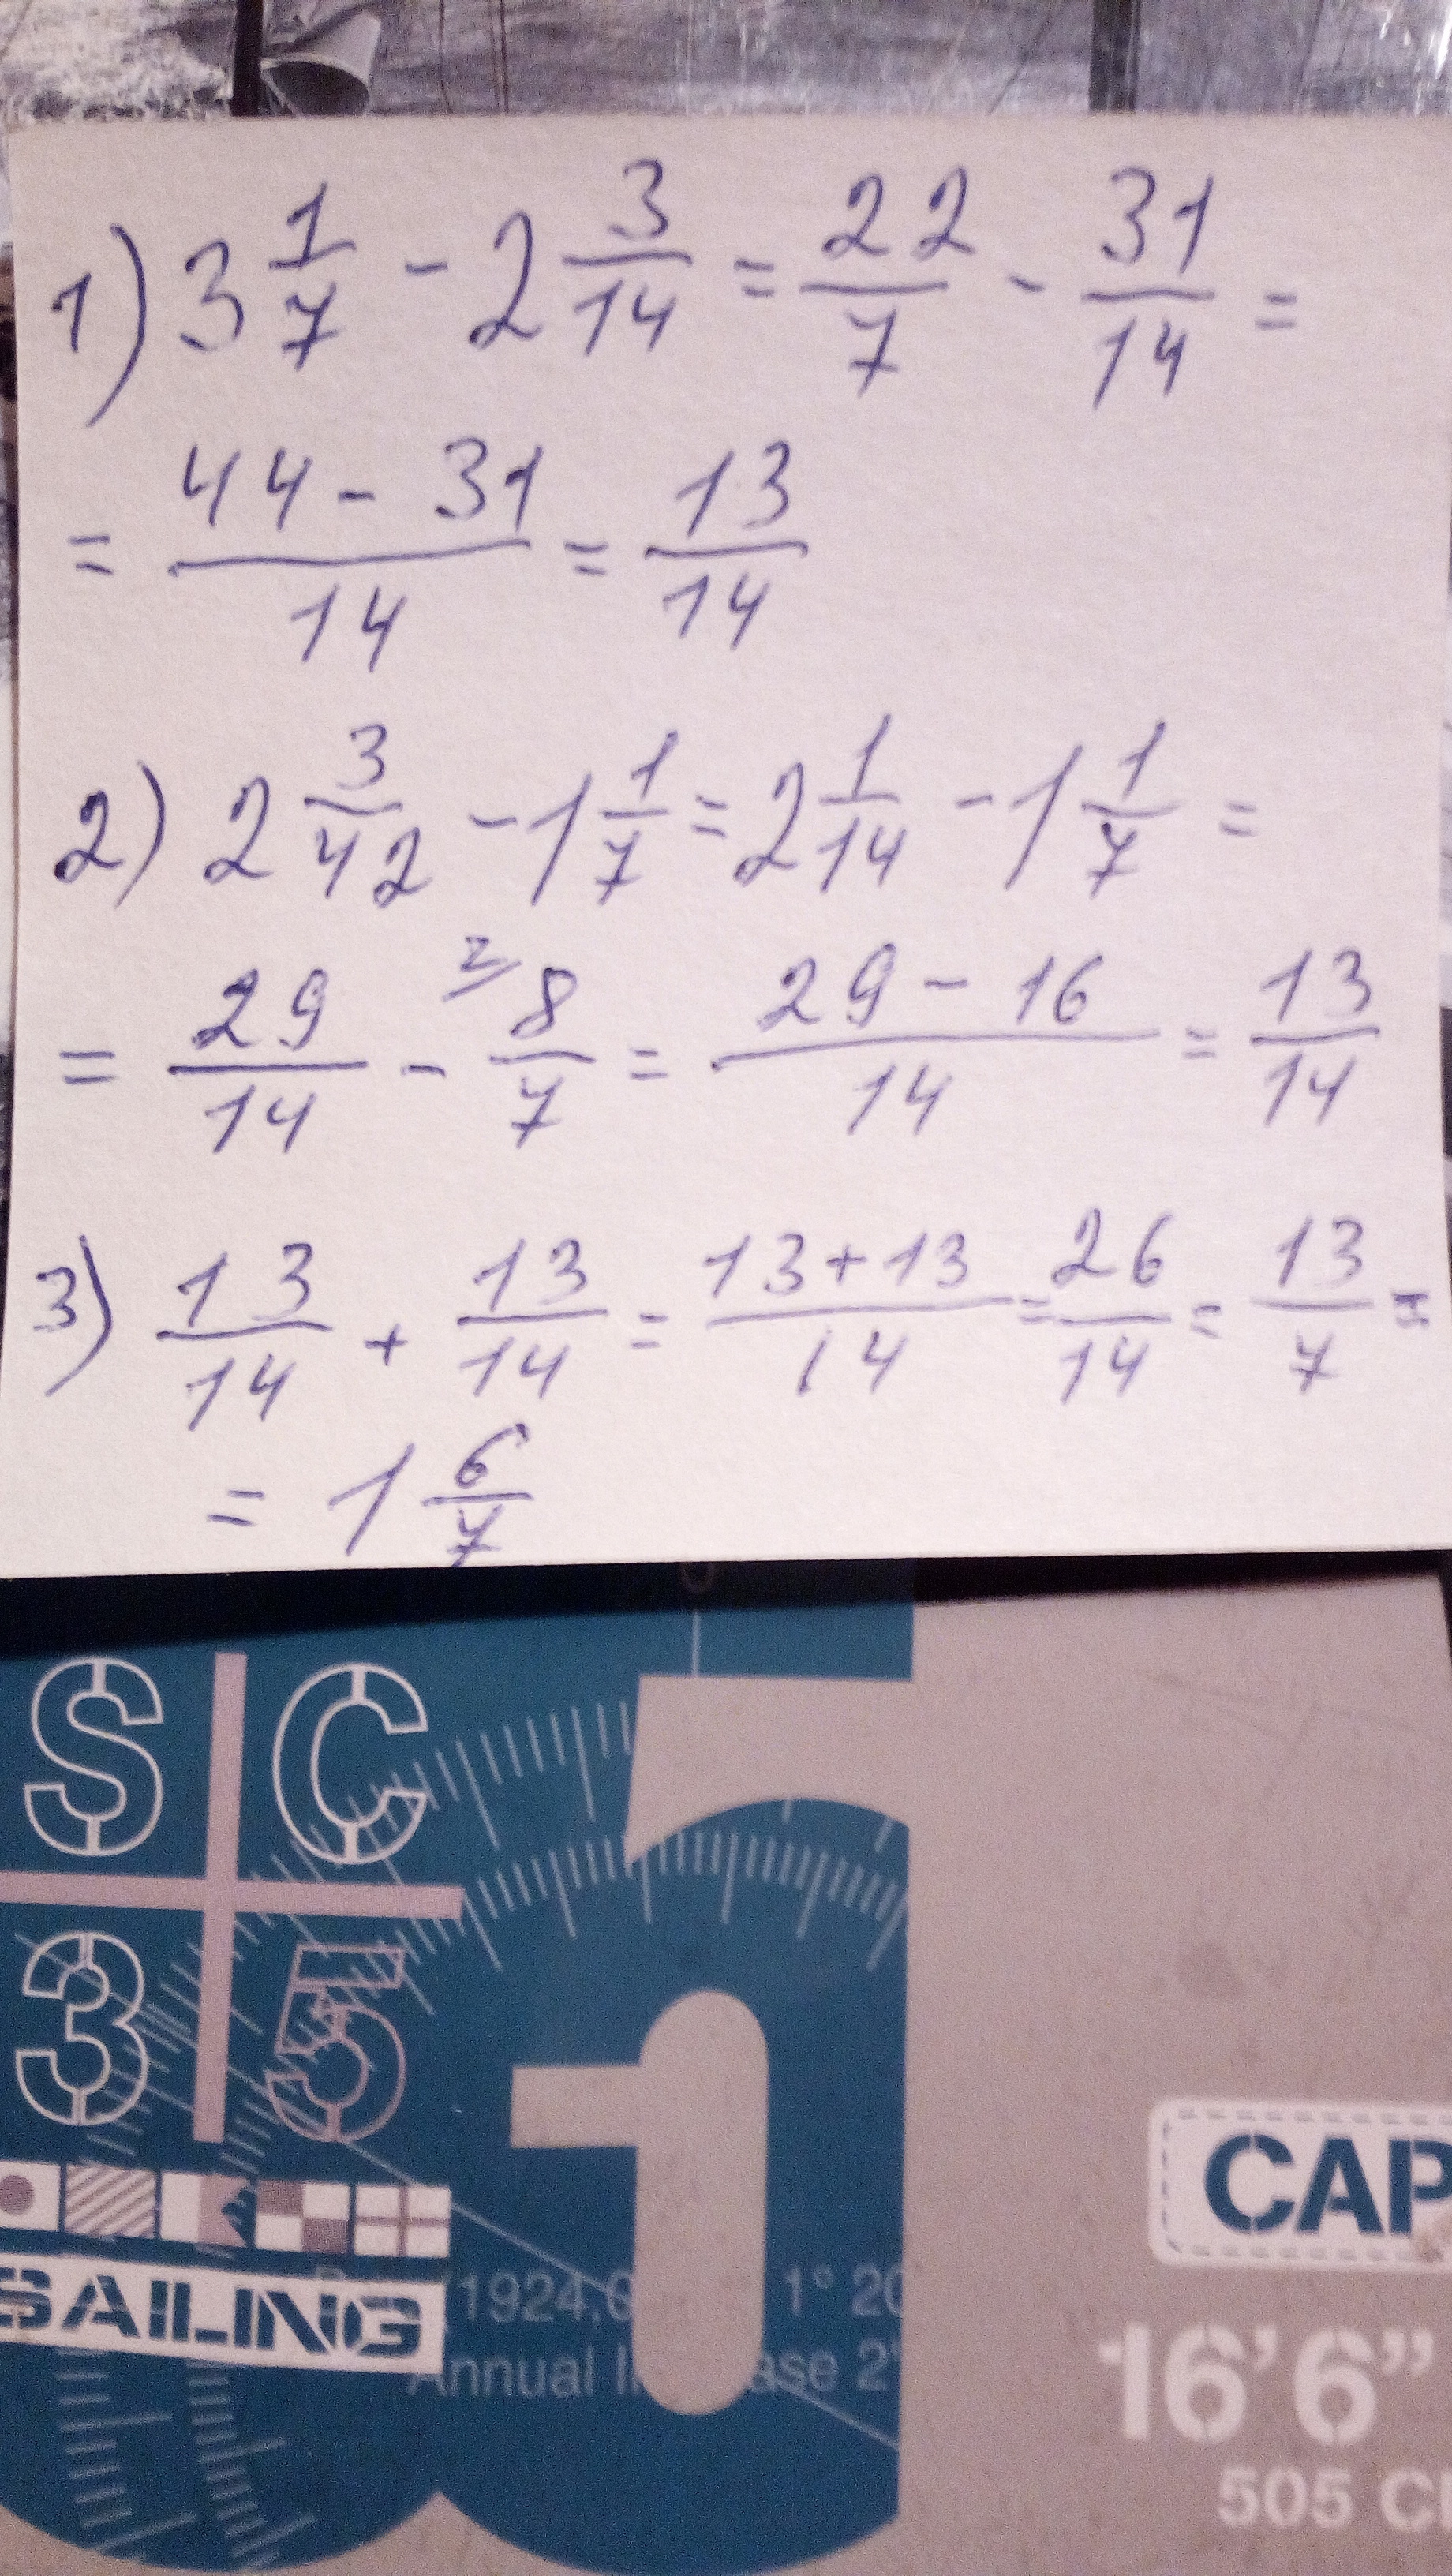 1) 3 1/7 - 2 3/14 = 22/7 - 31/14 =
= (44 - 31)/14 = 13/14
2) 2 3/42 - 1 1/7 = 2 1/14 - 1 1/7 =
= 29/14 - 2/ 8/7 = (29 - 16)/14 = 13/14
3) 13/14 + 13/14 = (13+13)/14 = 26/14 = 13/7 =
= 1 6/7
S C
3 5
SAILING
1924,
1° 20
Annual
CAP
16'6"
505